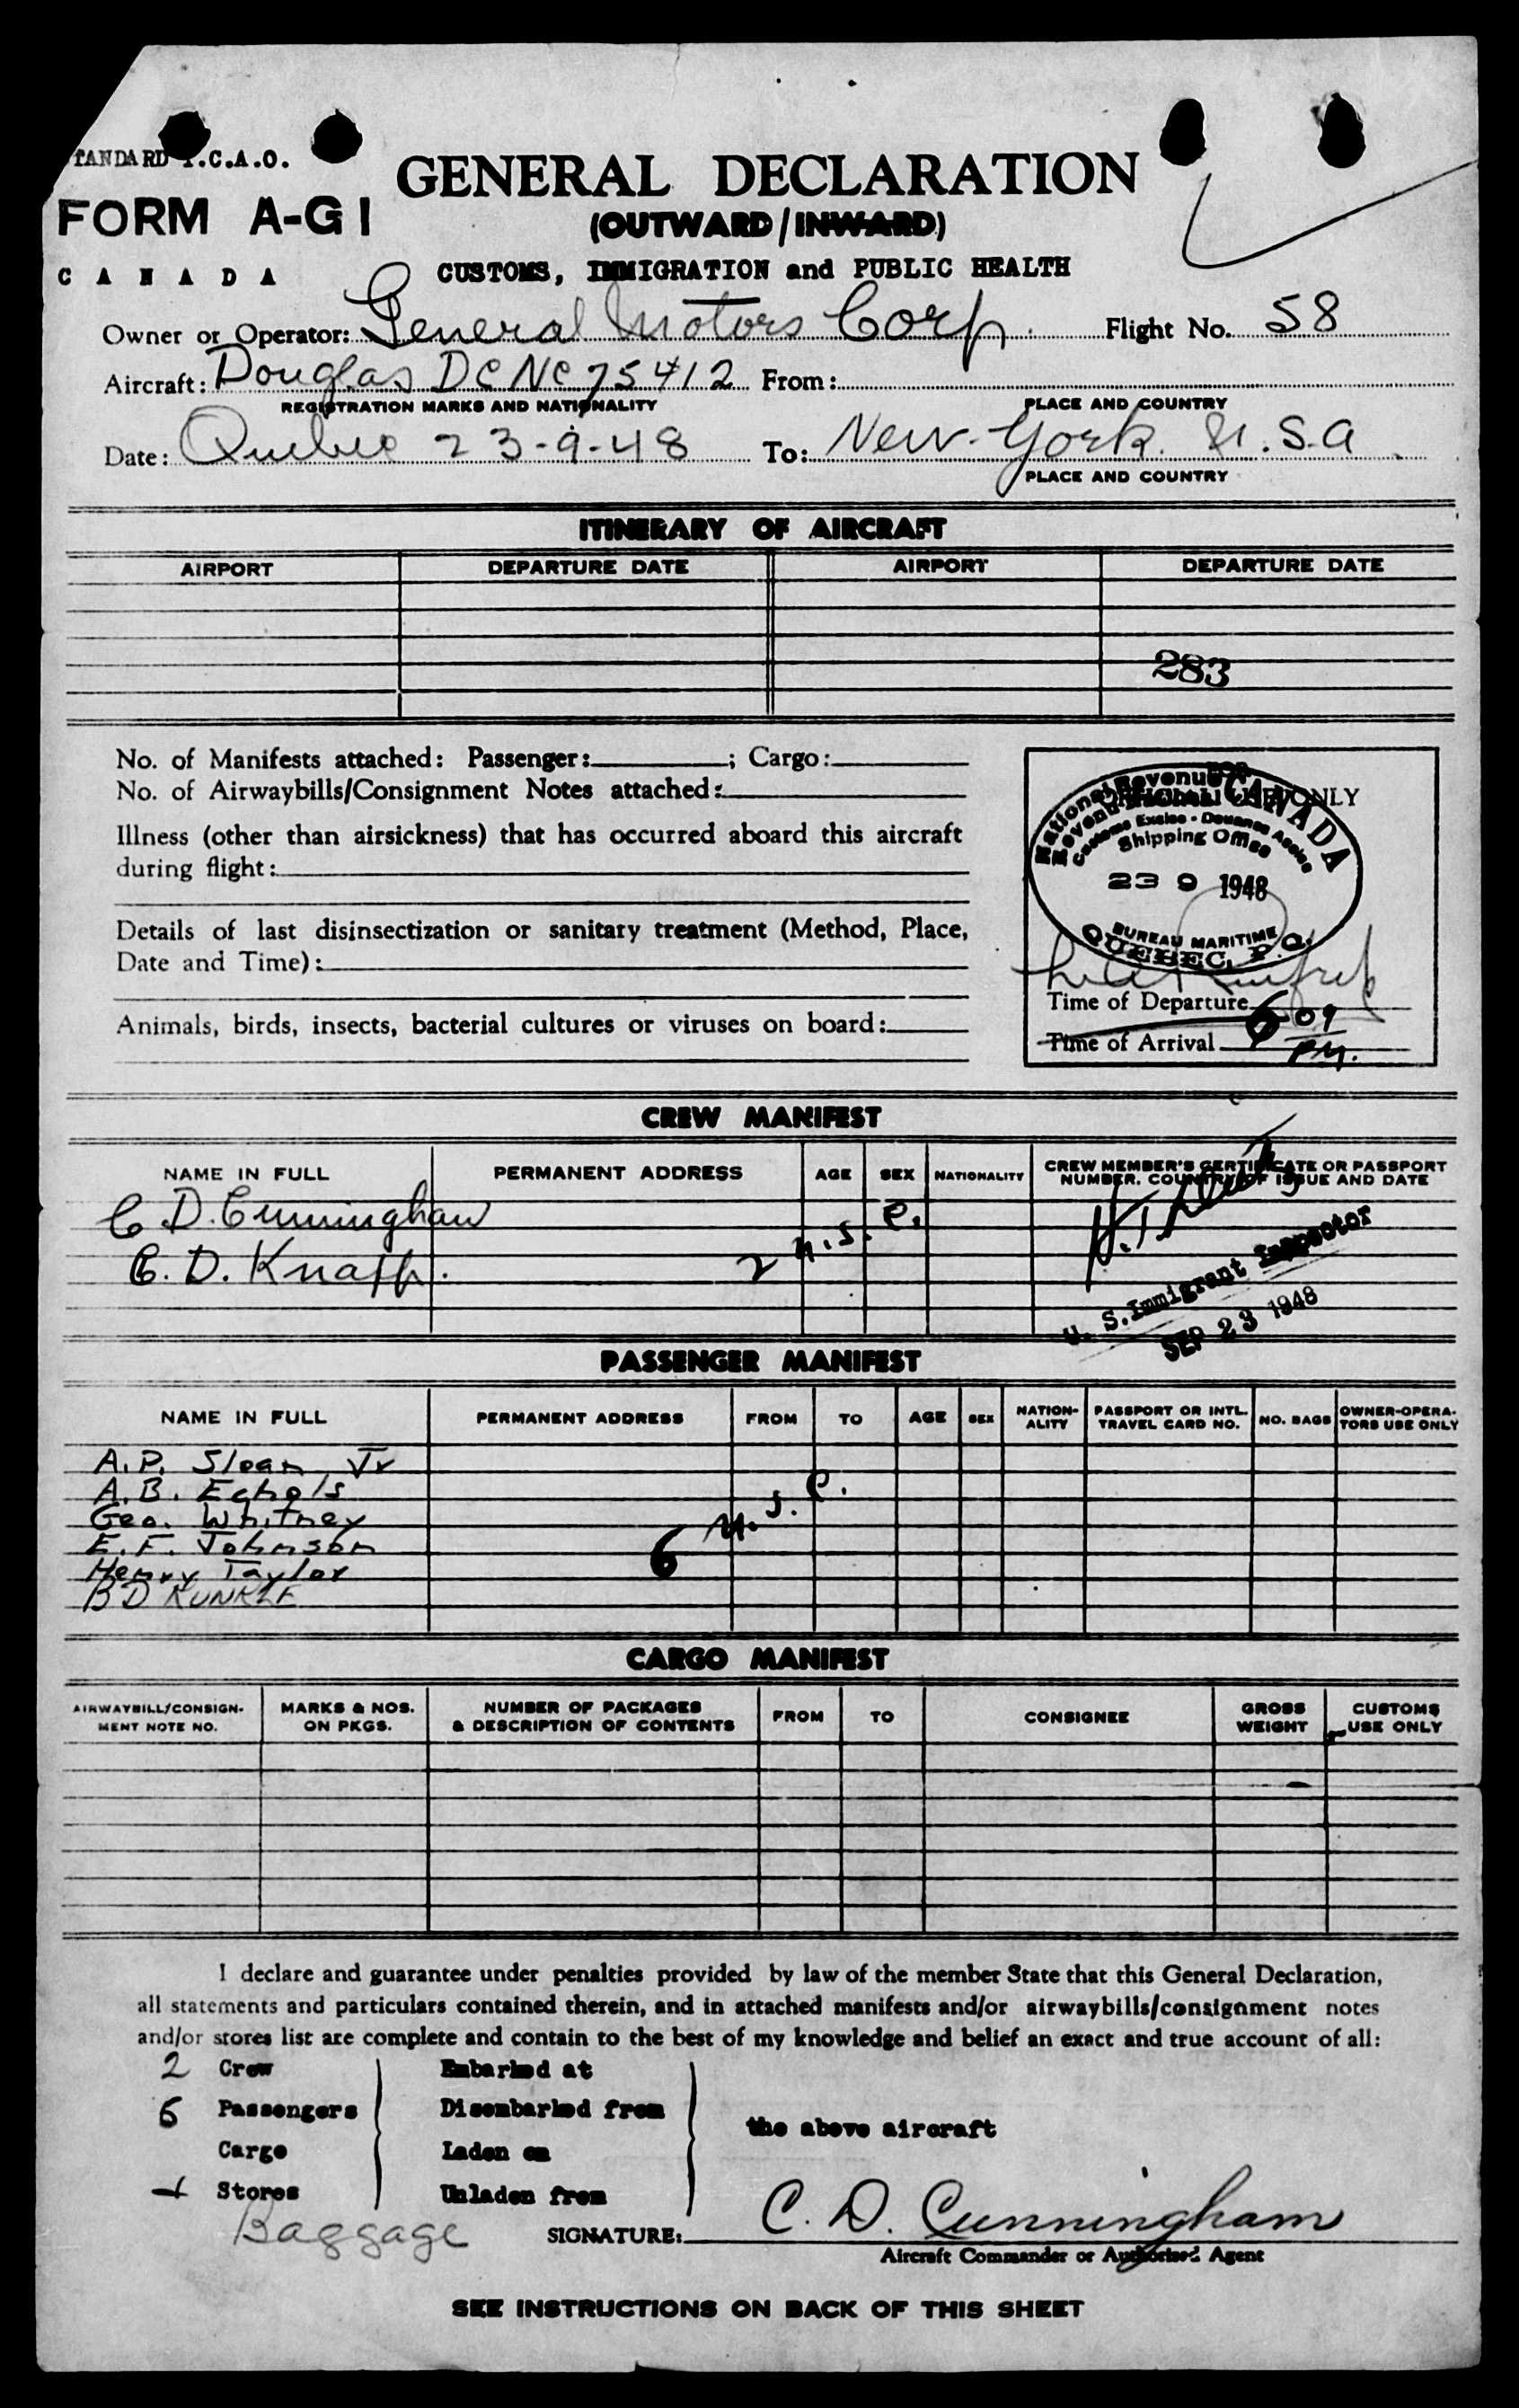 STANDARD I.C.A.O.
FORM A-G1
CANADA
GENERAL DECLARATION
(OUTWARD/INWARD)
CUSTOMS, IMMIGRATION and PUBLIC HEALTH
Owner or Operator: General Motors Corp. Flight No. 58
Aircraft: Douglas DC NC 75412 From:
REGISTRATION MARKS AND NATIONALITY PLACE AND COUNTRY
Date: Quebec 23-9-48 To: New York U.S.A.
PLACE AND COUNTRY
ITINERARY OF AIRCRAFT
AIRPORT DEPARTURE DATE AIRPORT DEPARTURE DATE
283
No. of Manifests attached: Passenger: ; Cargo:
No. of Airwaybills/Consignment Notes attached:
Illness (other than airsickness) that has occurred aboard this aircraft
during flight:
Details of last disinsectization or sanitary treatment (Method, Place,
Date and Time):
Animals, birds, insects, bacterial cultures or viruses on board:
FOR
OFFICIAL USE ONLY
National Revenue CANADA
Customs Excise - Douanes Accise
Shipping Office
23 9 1948
BUREAU MARITIME
QUEBEC, P.Q.
Time of Departure 6 09
Time of Arrival PM.
CREW MANIFEST
NAME IN FULL PERMANENT ADDRESS AGE SEX NATIONALITY CREW MEMBER'S CERTIFICATE OR PASSPORT
NUMBER. COUNTRY OF ISSUE AND DATE
C D. Cunningham
C. D. Knapp.
2 U.S.C.
U. S. Immigrant Inspector
SEP 23 1948
PASSENGER MANIFEST
NAME IN FULL PERMANENT ADDRESS FROM TO AGE SEX NATION-
ALITY PASSPORT OR INTL.
TRAVEL CARD NO. NO. BAGS OWNER-OPERA-
TORS USE ONLY
A.P. Sloan Jr
A.B. Echols
Geo. Whitney
E.F. Johnson
Henry Taylor
B D KUNKLE
6 U.S.C.
CARGO MANIFEST
AIRWAYBILL/CONSIGN-
MENT NOTE NO. MARKS & NOS.
ON PKGS. NUMBER OF PACKAGES
& DESCRIPTION OF CONTENTS FROM TO CONSIGNEE GROSS
WEIGHT CUSTOMS
USE ONLY
I declare and guarantee under penalties provided by law of the member State that this General Declaration,
all statements and particulars contained therein, and in attached manifests and/or airwaybills/consignment notes
and/or stores list are complete and contain to the best of my knowledge and belief an exact and true account of all:
2 Crew Embarked at
6 Passengers Disembarked from
the above aircraft
Cargo Laden on
Stores Unladen from
Baggage
SIGNATURE: C. D. Cunningham
Aircraft Commander or Authorised Agent
SEE INSTRUCTIONS ON BACK OF THIS SHEET